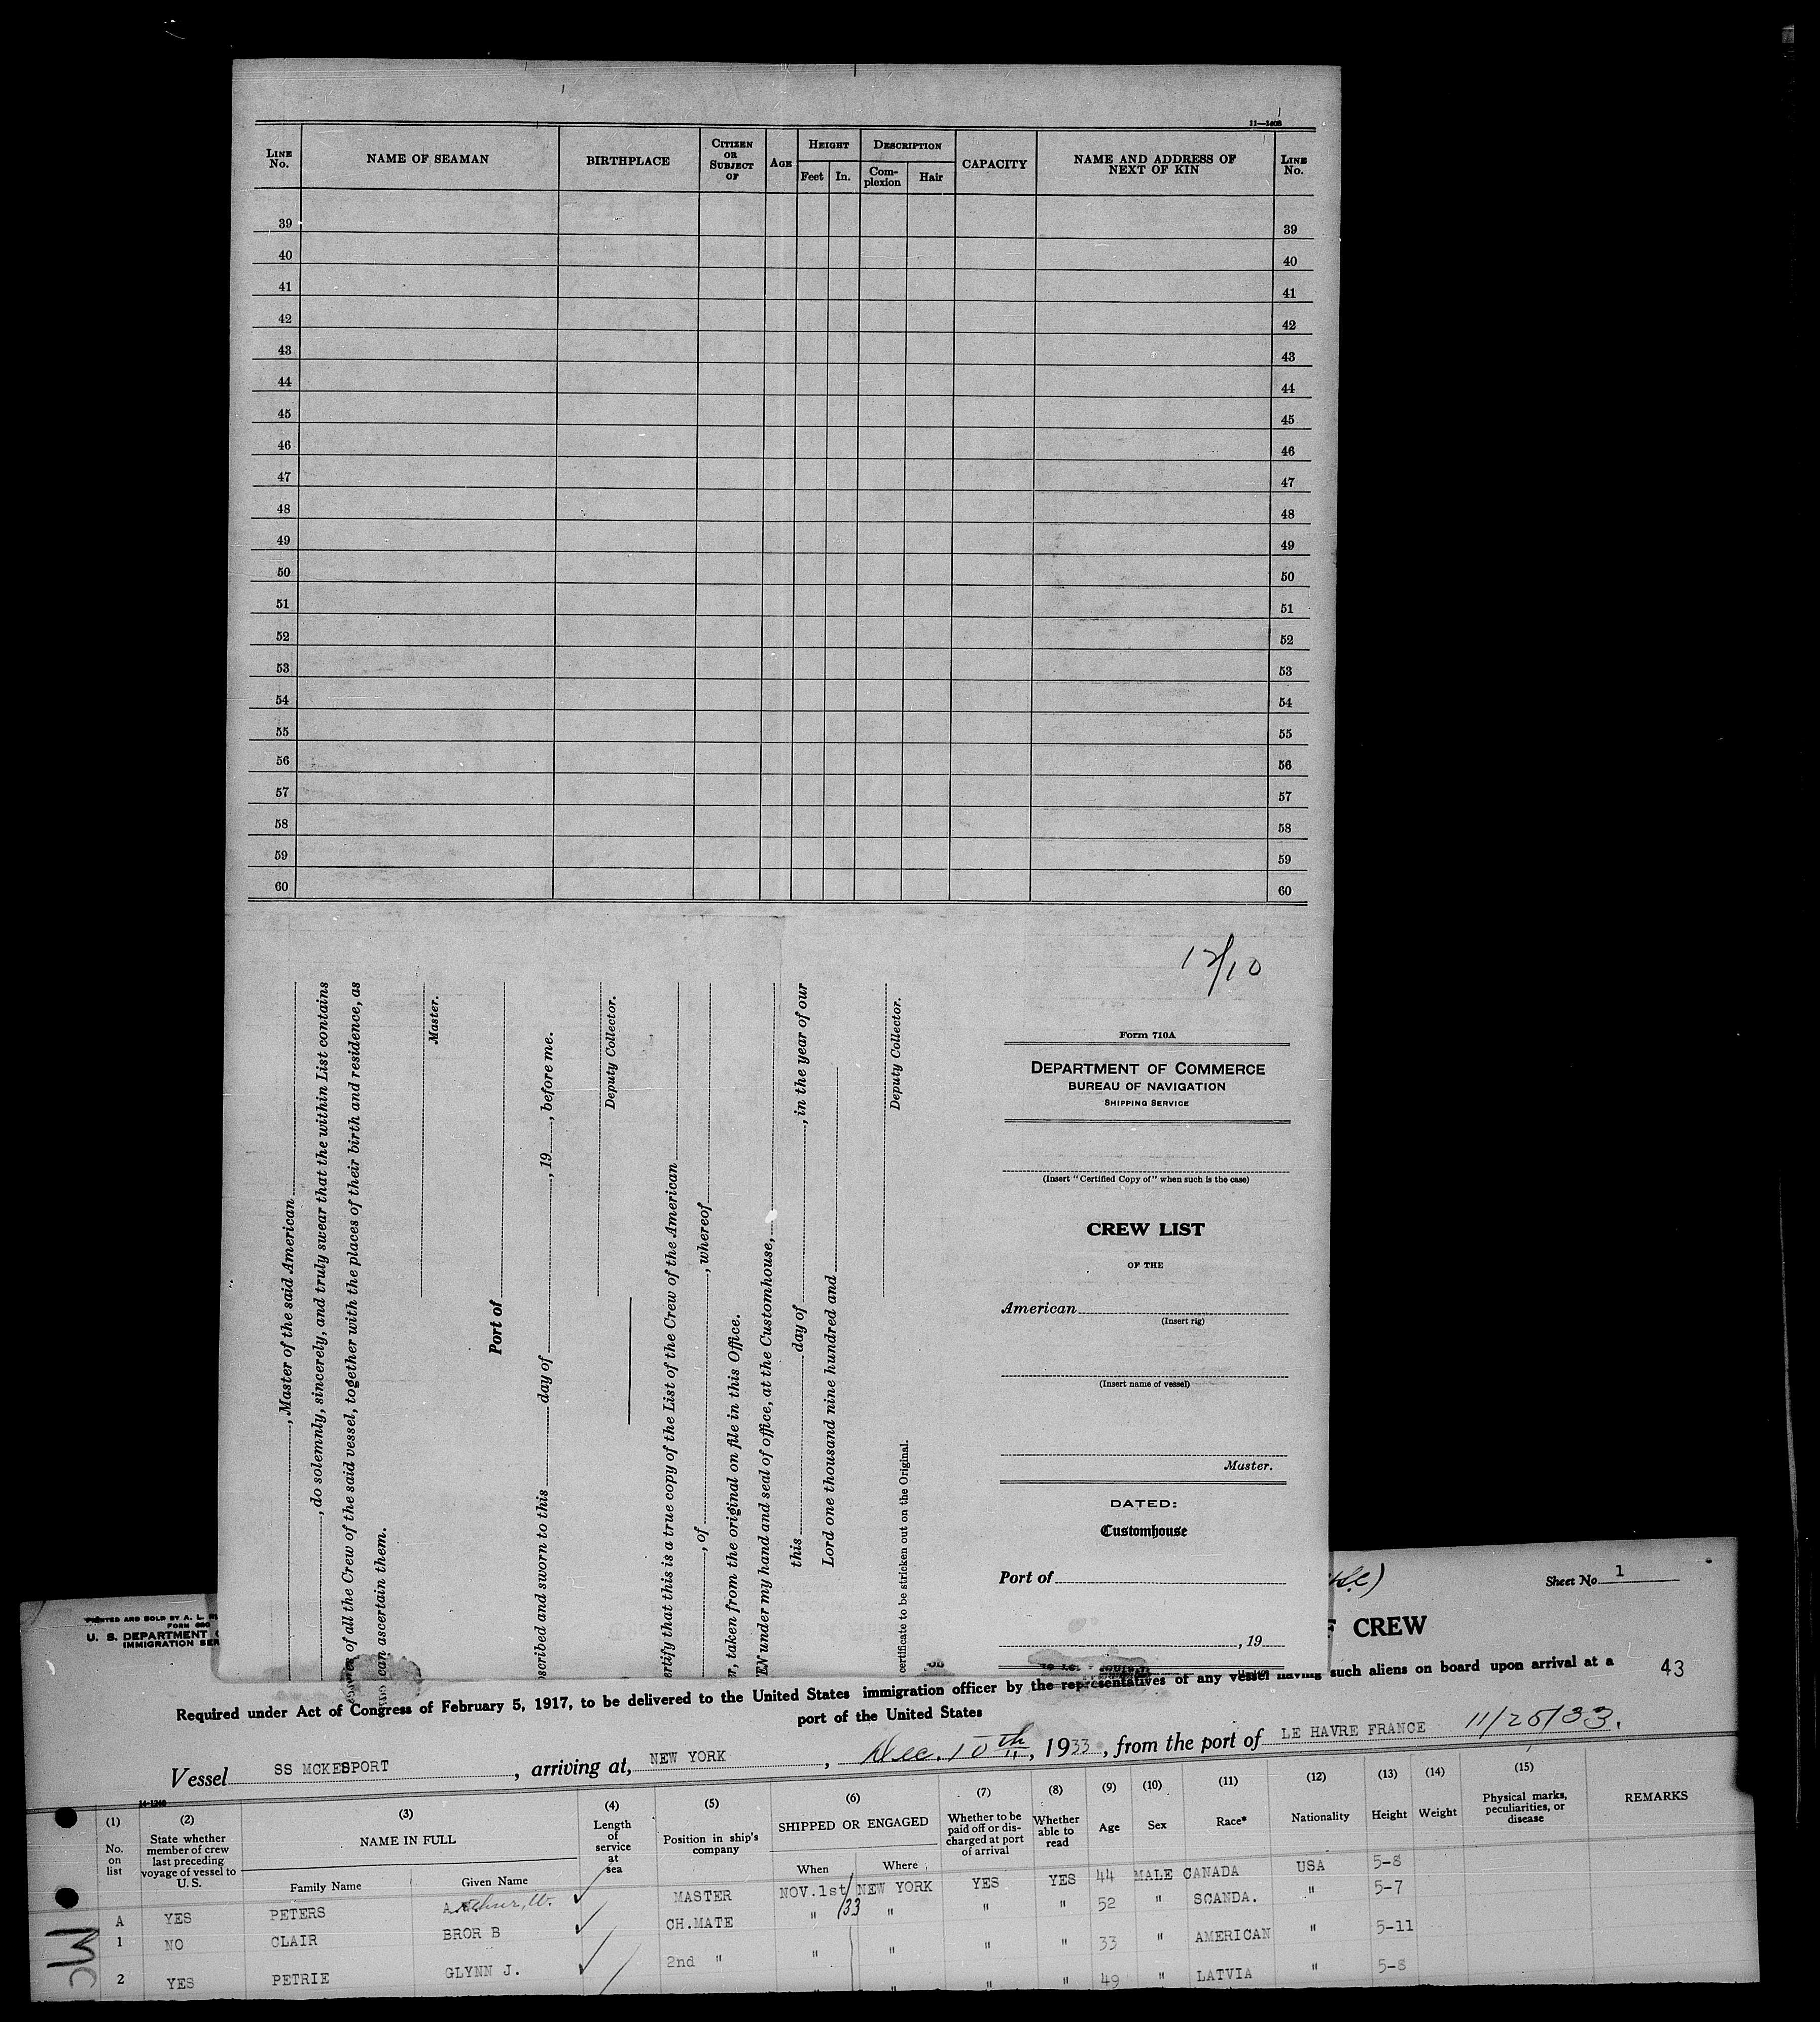 11—1408
LINE No. NAME OF SEAMAN BIRTHPLACE CITIZEN OR SUBJECT OF AGE HEIGHT Feet In. DESCRIPTION Complexion Hair CAPACITY NAME AND ADDRESS OF NEXT OF KIN LINE No.
39 39
40 40
41 41
42 42
43 43
44 44
45 45
46 46
47 47
48 48
49 49
50 50
51 51
52 52
53 53
54 54
55 55
56 56
57 57
58 58
59 59
60 60
, Master of the said American
, do solemnly, sincerely, and truly swear that the within List contains
of all the Crew of the said vessel, together with the places of their birth and residence, as
can ascertain them.
Master.
Port of
scribed and sworn to this day of , 19 , before me.
Deputy Collector.
ertify that this is a true copy of the List of the Crew of the American
, of , whereof
r, taken from the original on file in this Office.
EN under my hand and seal of office, at the Customhouse,
this day of , in the year of our
Lord one thousand nine hundred and
Deputy Collector.
certificate to be stricken out on the Original.
12/10
Form 710A
DEPARTMENT OF COMMERCE
BUREAU OF NAVIGATION
SHIPPING SERVICE
(Insert "Certified Copy of" when such is the case)
CREW LIST
OF THE
American
(Insert rig)
(Insert name of vessel)
Master.
DATED:
Customhouse
Port of
, 19
Sheet No. 1
PRINTED AND SOLD BY A. L.
FORM 680
U. S. DEPARTMENT
IMMIGRATION SER
F CREW
43
Required under Act of Congress of February 5, 1917, to be delivered to the United States immigration officer by the representatives of any vessel having such aliens on board upon arrival at a
port of the United States
Vessel SS MCKESPORT , arriving at, NEW YORK , Dec. 10th , 1933 , from the port of LE HAVRE FRANCE 11/26/33.
14-1240
(1) (2) (3) (4) (5) (6) (7) (8) (9) (10) (11) (12) (13) (14) (15)
No. on list State whether member of crew last preceding voyage of vessel to U. S. NAME IN FULL Family Name Given Name Length of service at sea Position in ship's company SHIPPED OR ENGAGED When Where Whether to be paid off or discharged at port of arrival Whether able to read Age Sex Race* Nationality Height Weight Physical marks, peculiarities, or disease REMARKS
A YES PETERS Arthur, W. MASTER NOV.1st/33 NEW YORK YES YES 44 MALE CANADA USA 5-8
1 NO CLAIR BROR B CH.MATE " " " " 52 " SCANDA. " 5-7
2 YES PETRIE GLYNN J. 2nd " " " " " 33 " AMERICAN " 5-11
" " " " 49 " LATVIA " 5-8
Mc